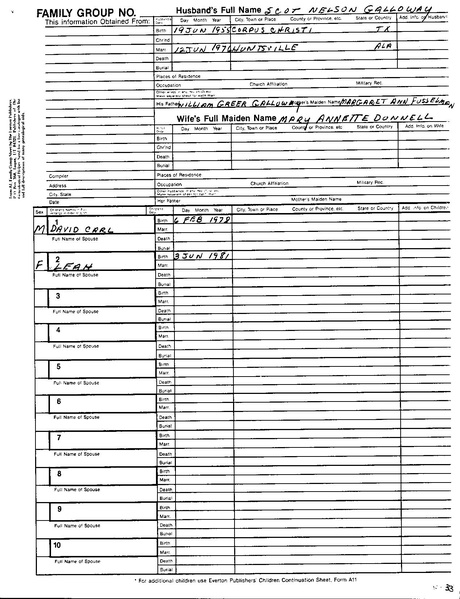 FAMILY GROUP NO.
This Information Obtained From:
Husband's Full Name SCOT NELSON GALLOWAY
Day Month Year City, Town or Place County or Province, etc. State or Country Add. Info. on Husband
Birth 19 JUN 1955 CORPUS CHRISTI TX
Chr'nd
Marr. 12 JUN 197 HUNTSVILLE ALA
Death
Burial
Places of Residence
Occupation Church Affiliation Military Rec.
His Father WILLIAM GREER GALLOWAY Mother's Maiden Name MARGARET ANN FUSSELMAN
Wife's Full Maiden Name MARY ANNETTE DUNNELL
Day Month Year City, Town or Place County or Province, etc. State or Country Add. Info. on Wife
Birth
Chr'nd
Death
Burial
Compiler Places of Residence
Address Occupation Church Affiliation Military Rec.
City, State
Date Her Father Mother's Maiden Name
Sex Day Month Year City, Town or Place County or Province, etc. State or Country Add. Info. on Children
1 Birth 6 FEB 1978
M DAVID CARL Marr.
Full Name of Spouse Death
Burial
2 Birth 3 JUN 1981
F LEAH Marr.
Full Name of Spouse Death
Burial
3 Birth
Marr.
Full Name of Spouse Death
Burial
4 Birth
Marr.
Full Name of Spouse Death
Burial
5 Birth
Marr.
Full Name of Spouse Death
Burial
6 Birth
Marr.
Full Name of Spouse Death
Burial
7 Birth
Marr.
Full Name of Spouse Death
Burial
8 Birth
Marr.
Full Name of Spouse Death
Burial
9 Birth
Marr.
Full Name of Spouse Death
Burial
10 Birth
Marr.
Full Name of Spouse Death
Burial
* For additional children use Everton Publishers' Children Continuation Sheet, Form A11
33